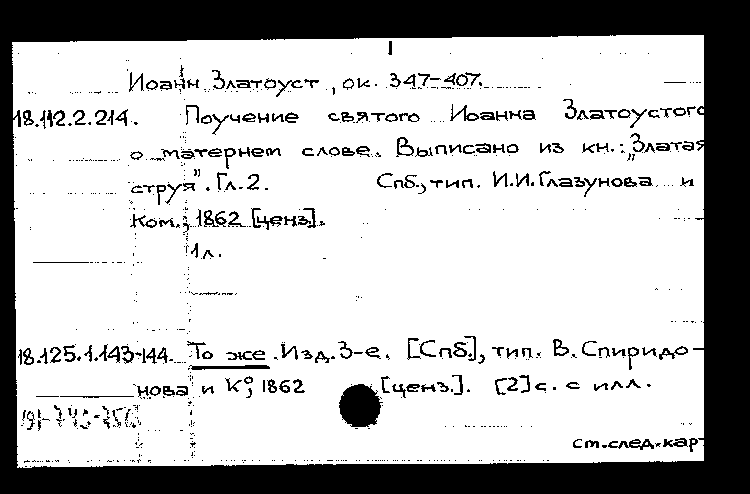 Иоанн Златоуст, ок. 347-407.
18.112.2.214. Поучение святого Иоанна Златоустого
о матернем слове. Выписано из кн.: „Златая
струя". Гл. 2. Спб., тип. И.И. Глазунова и
Ком., 1862 [ценз.].
1 л.
18.125.1.143-144. То же. Изд. 3-е. [Спб.], тип. В. Спиридо-
нова и К°, 1862 [ценз.]. [2] с. с илл.
см. след. карт